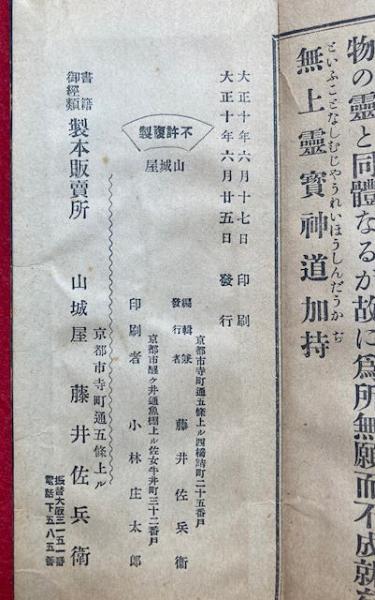 物の靈と同體なるが故に爲所無願而不成就
といふことなしむじやうれいほうしんだうかぢ
無上靈寳神道加持
大正十年六月十七日印刷
大正十年六月廿五日發行
不許複製
山城屋
京都市寺町通五條上ル四橋詰町二十五番戸
編輯兼
發行者 藤井佐兵衛
京都市醒ケ井通魚棚上ル佐女牛井町三十二番戸
印刷者 小林庄太郎
書籍
御經類
製本販賣所
京都市寺町通五條上ル
山城屋 藤井佐兵衛
振替大阪三一五一番
電話下五八五番